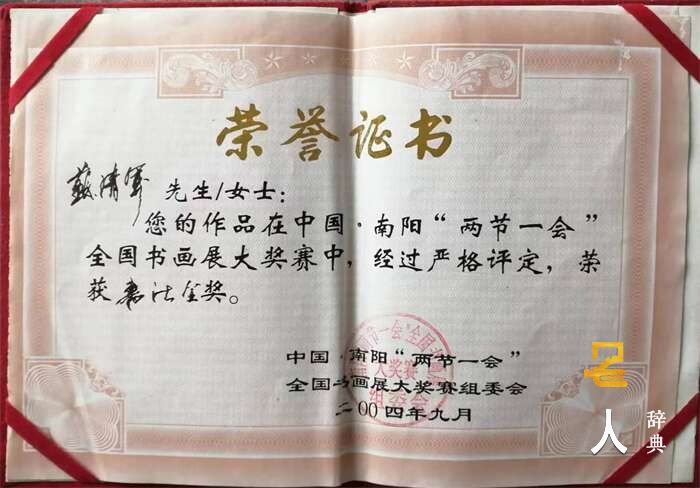 荣誉证书
苏清军 先生/女士：
您的作品在中国·南阳“两节一会”
全国书画展大奖赛中，经过严格评定，荣
获书法金奖。
中国·南阳“两节一会”
全国书画展大奖赛组委会
二〇〇四年九月
名
人
辞典